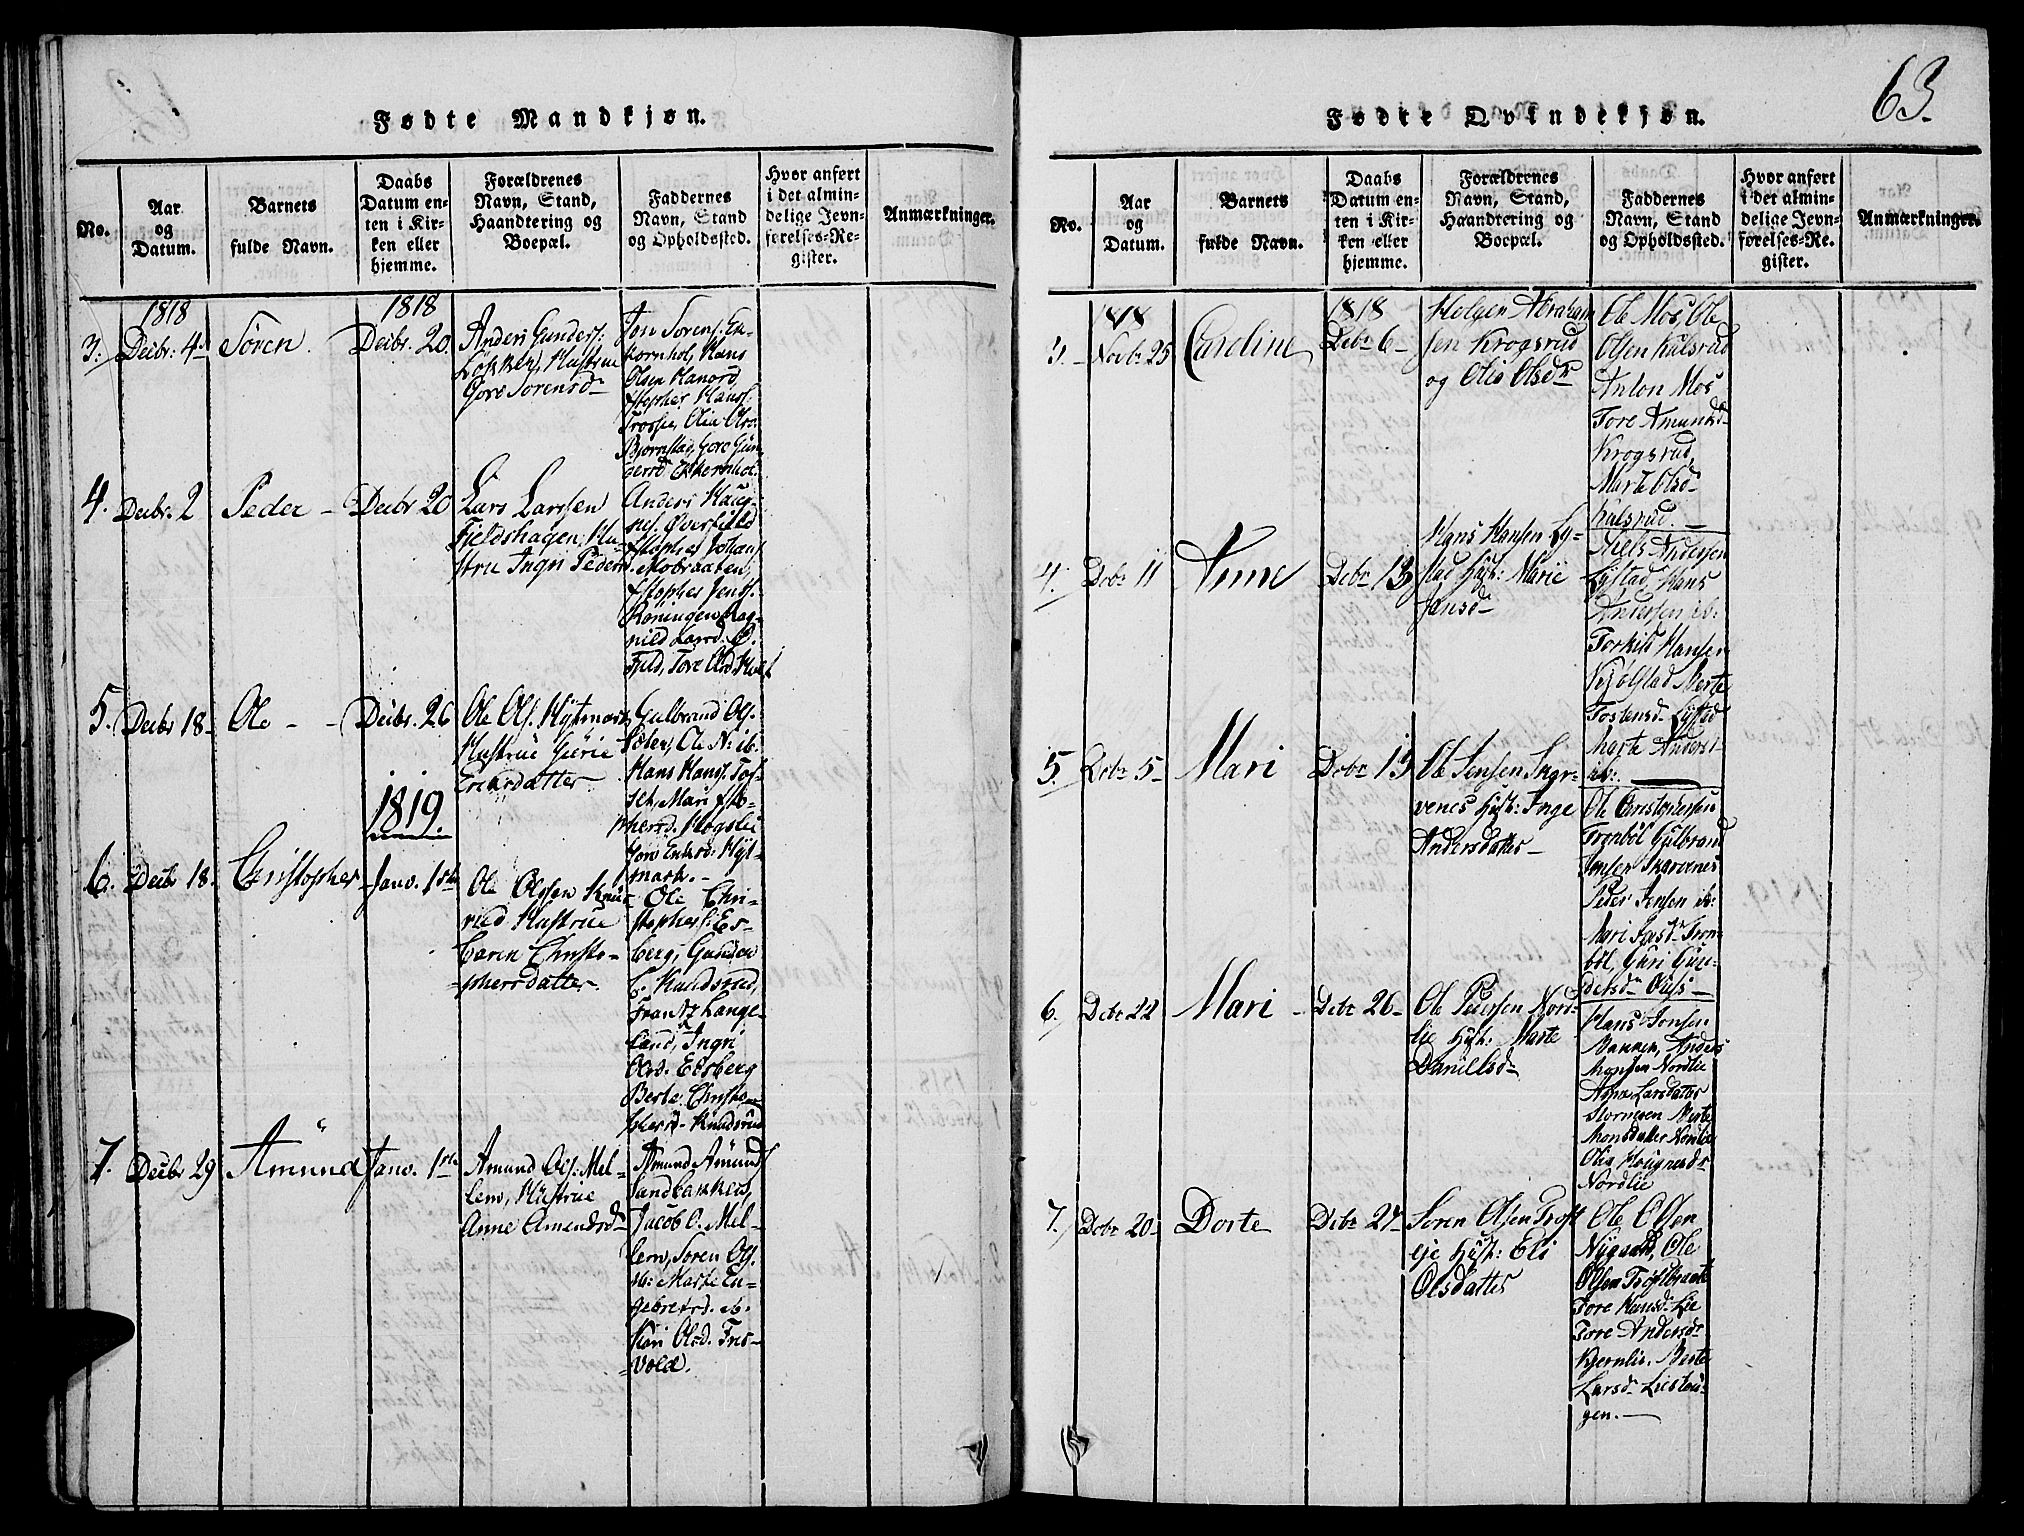 63.
Fødte Mandkjøn.
No.
Aar
og
Datum.
Barnets
fulde Navn.
Daabs
Datum en-
ten i Kir-
ken eller
hjemme.
Forældrenes
Navn, Stand,
Haandtering og
Boepæl.
Faddernes
Navn, Stand
og Opholdssted.
Hvor anført
i det almin-
delige Jevn-
førelses-Re-
gister.
Anmærkninger.
3.
1818
Decbr: 4.
Sören.
1818
Decbr. 20.
Anders Gunders:
Løkken, Hustrue
Gore Sorensd
Jon Sorens. En-
kornhol, Hans
Olsen Hanord,
Bjørnstad, Gore Gun-
4.
Decbr. 2
Peder -
Decbr 20
Lars Larssen
Fieldshagen, Hu-
stru Ingri Pedersd.
Anders Haag-
Øverfield
Mobraaten,
Røningen, Rag-
nild Larsd. Ø.
5.
Decbr 18
Ole - -
Decbr. 26
Ole Ols. Hytmark,
Hustrue Guri
Ericksdatter
Gulbrand Ols.
Solen, Ole N: ib.
Hans Hans. Tos-
mark. -
1819.
6.
Decbr 18.
Christopher
Janv. 1ste
Ole Olssen Knu-
Hustrue
Caren Christo-
phersdatter.
Ole Chri-
stophers: Es-
berg, Gunder
C. Knudsrud,
Frantz Lange-
land, Ingri
Olsd. Essberg
Berte Christo-
phersd. Knudsrud
7.
Decbr 29
Amund
Janv. 1ste
Amund Ols: Mel-
lem, Hustrue
Anne Amundsd
Amund Amunds
Sandbakken,
Jacob O. Mel-
lem, Soren Ols.
ib: Marte En-
gebretsd. ib.
Kari Olsd. Fres-
vold.
Fødte Qvindekjøn.
No.
Aar
og
Datum.
Barnets
fulde Navn.
Daabs
Datum en-
ten i Kir-
ken eller
hjemme.
Forældrenes
Navn, Stand,
Haandtering og
Boepæl.
Faddernes
Navn, Stand
og Opholdssted.
Hvor anført
i det almin-
delige Jevn-
førelses-Re-
gister.
Anmærkninger.
3.
1818
Novbr 25
Caroline
1818
Debr 6
Helgen Abraham
sen Krogsrud
og Olia Olsdr
Ole Mos, Ole
Olsen Kalsrud
Anton Mos
Tore Amundsd
Krogsrud,
Marte Olsd
Kalsrud.
4.
Debr 11
Anne
Debr 13
Hans Hansen Ly-
stad Hust: Marie
Jensd
Niels Andersen
Lystad, Hans
Andersen ib:
Torkild Hansen
Kjølstad Merte
Tostensd Lystad
Marte Andersd
ib:
5.
Debr 5
Mari
Debr 13
Ole Jensen Skar-
venes Hust: Inge
Andersdatter
Ole Christophersen
Trønbøl Gulbrand
Jensen Skarvenes
Peder Jensen ib:
Mari Jensd Trøn
bøl, Guri Gun-
6.
Debr 22
Mari -
Debr 26
Ole Pedersen Nord-
lie Hust: Marte
Danielsd
Hans Jonsen
Bakken, Anders
Hansen Nordlie
Anne Larsdatter
Stornegen Merte
Monsdatter Nordlie
Olia Haagensdr
Nordlie
7.
Debr 20
Dorte
Debr 27
Soren Olsen Trøst
eje Hust: Eli
Olsdatter
Ole Olsen
Nygaard, Ole
Olsen Trøstbraate
Tore Hansd Lie
Tore Andersdr
Kjernlie. Berte
Larsd Liestu-
gen.